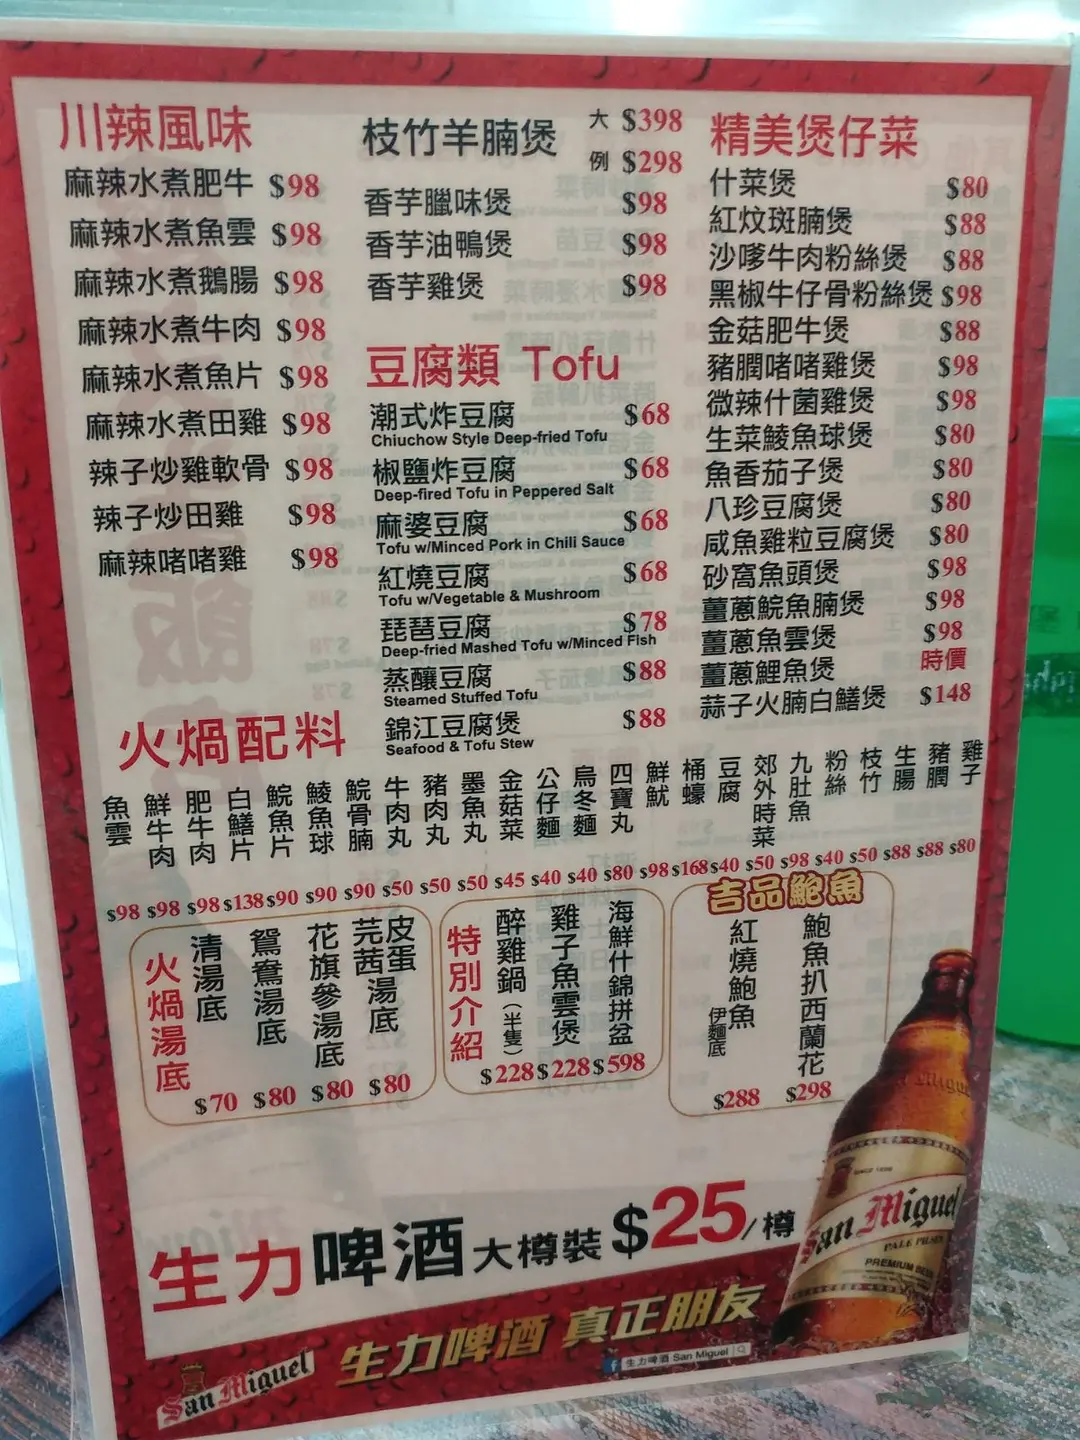 川辣風味
麻辣水煮肥牛 $98
麻辣水煮魚雲 $98
麻辣水煮鵝腸 $98
麻辣水煮牛肉 $98
麻辣水煮魚片 $98
麻辣水煮田雞 $98
辣子炒雞軟骨 $98
辣子炒田雞 $98
麻辣啫啫雞 $98
枝竹羊腩煲 大 $398
例 $298
香芋臘味煲 $98
香芋油鴨煲 $98
香芋雞煲 $98
豆腐類 Tofu
潮式炸豆腐 $68
Chiuchow Style Deep-fried Tofu
椒鹽炸豆腐 $68
Deep-fired Tofu in Peppered Salt
麻婆豆腐 $68
Tofu w/Minced Pork in Chili Sauce
紅燒豆腐 $68
Tofu w/Vegetable & Mushroom
琵琶豆腐 $78
Deep-fried Mashed Tofu w/Minced Fish
蒸釀豆腐 $88
Steamed Stuffed Tofu
錦江豆腐煲 $88
Seafood & Tofu Stew
精美煲仔菜
什菜煲 $80
紅炆斑腩煲 $88
沙嗲牛肉粉絲煲 $88
黑椒牛仔骨粉絲煲 $98
金菇肥牛煲 $88
豬膶啫啫雞煲 $98
微辣什菌雞煲 $98
生菜鯪魚球煲 $80
魚香茄子煲 $80
八珍豆腐煲 $80
咸魚雞粒豆腐煲 $80
砂窩魚頭煲 $98
薑蔥鯇魚腩煲 $98
薑蔥魚雲煲 $98
薑蔥鯉魚煲 時價
蒜子火腩白鱔煲 $148
火煱配料
魚雲 $98
鮮牛肉 $98
肥牛肉 $98
白鱔片 $138
鯇魚片 $90
鯪魚球 $90
鯇骨腩 $90
牛肉丸 $50
豬肉丸 $50
墨魚丸 $50
金菇菜 $45
公仔麵 $40
烏冬麵 $40
四寶丸 $80
鮮魷 $98
桶蠔 $168
豆腐 $40
郊外時菜 $50
九肚魚 $98
粉絲 $40
枝竹 $50
生腸 $88
豬膶 $88
雞子 $80
火煱湯底
清湯底 $70
鴛鴦湯底 $80
花旗參湯底 $80
皮蛋芫茜湯底 $80
特別介紹
醉雞鍋(半隻) $228
雞子魚雲煲 $228
海鮮什錦拼盆 $598
吉品鮑魚
紅燒鮑魚 伊麵底 $288
鮑魚扒西蘭花 $298
生力啤酒 大樽裝 $25/樽
生力啤酒 真正朋友
San Miguel
生力啤酒 San Miguel
SINCE 1890
San Miguel
PALE PILSEN
PREMIUM BEER